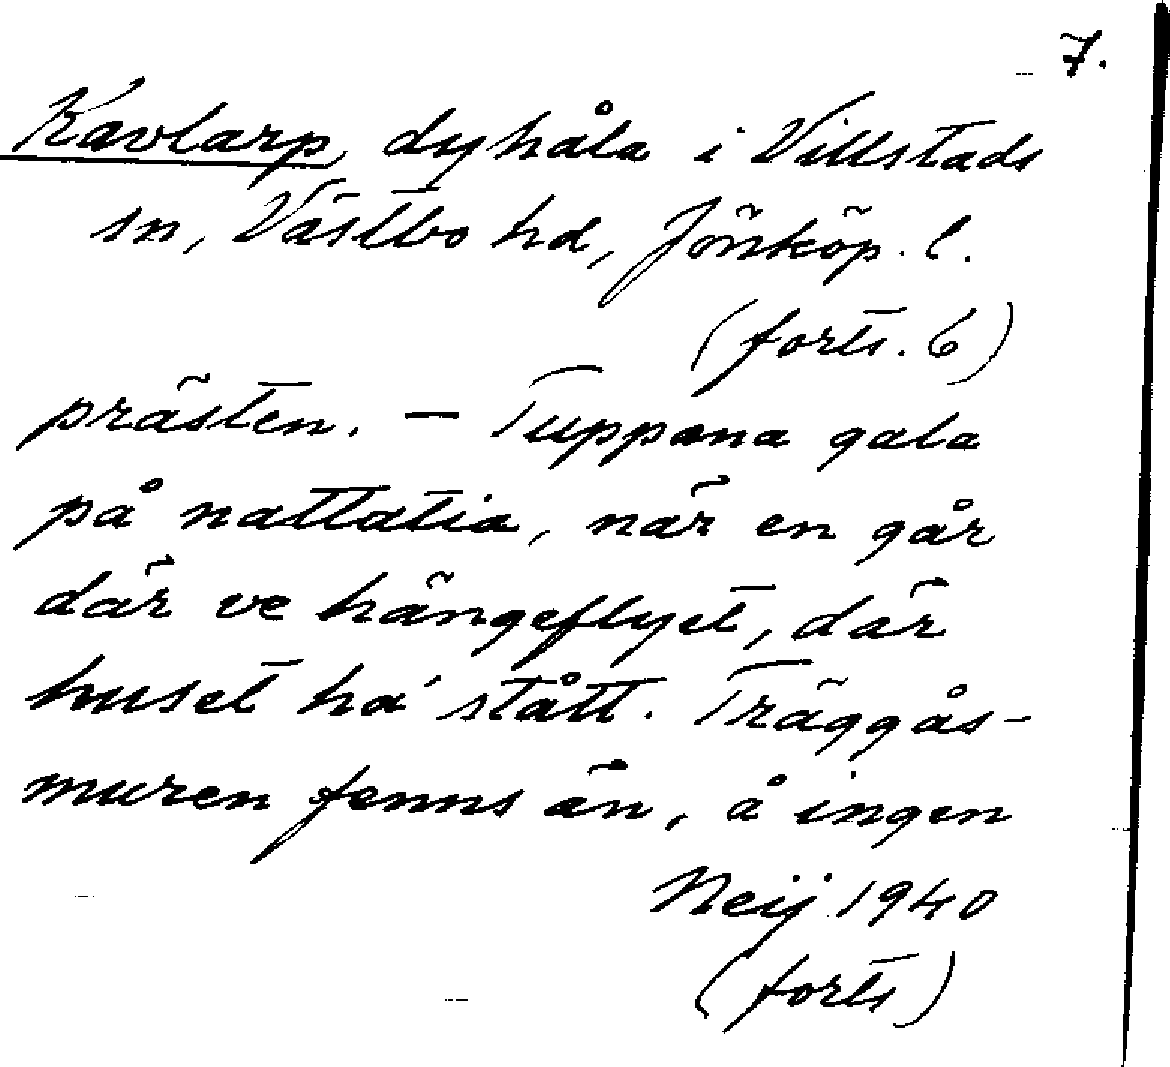 7.
Kavlarp, dyhåla i Villstads
sn, Västbo hd, Jönköp. l.
(forts. 6)
prästen. — Tuppana gala
på nattatia, när en går
där ve hängeflyet, där
huset ha' stått. Träggås-
muren fenns än, å ingen
Neij 1940
(forts)